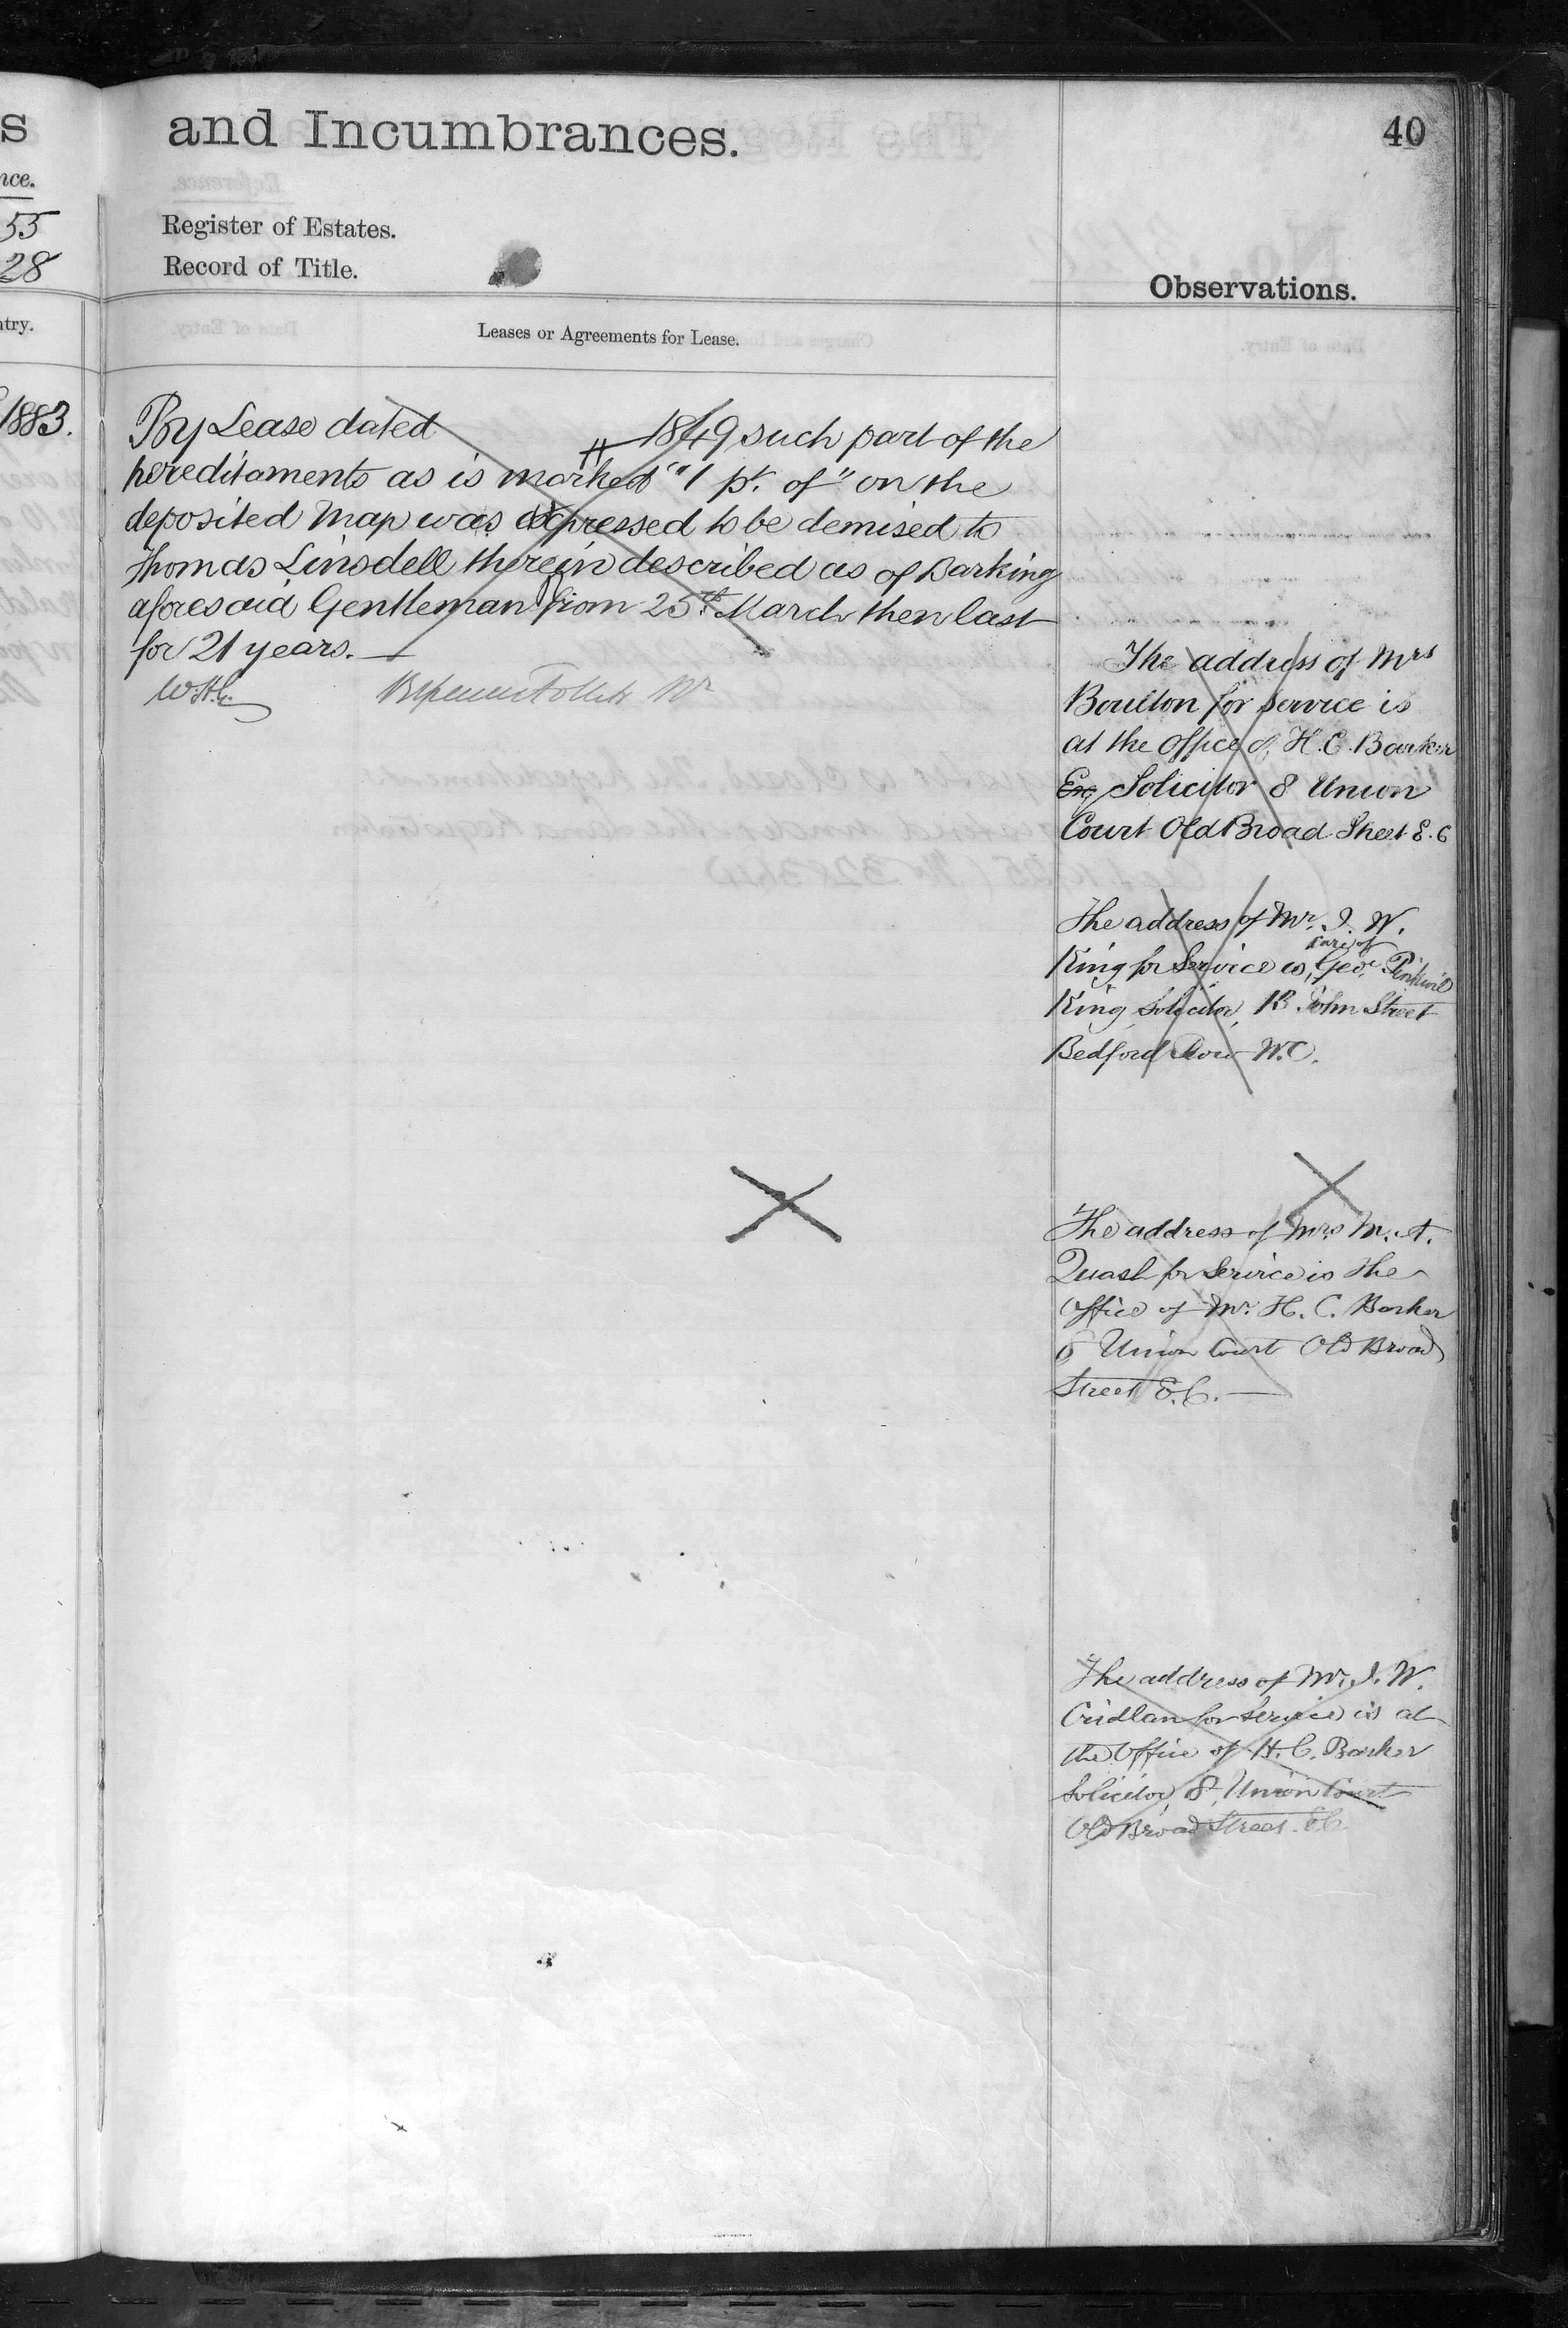 s
and Incumbrances.
40
nce.
55
28
Register of Estates.
Record of Title.
Observations.
ntry.
Leases or Agreements for Lease.
1883.
By Lease dated 1849 such part of the
hereditaments as is marked "1 pt. of" on the
deposited Map was expressed to be demised to
Thomas Linsdell therein described as of Barking
aforesaid Gentleman from 25th March then last
for 21 years.
W.H.C.
The address of Mrs
Boulton for service is
at the office of H. C. Barker
Esq Solicitor 8 Union
Court Old Broad Street E.C
The address of Mr. J. W.
care of
King for Service is, Geo.
King Solicitor, John Street
Bedford Row W.C.
The address of Mrs M. A.
Quash for Service is the
Office of Mr. H. C. Barker
8 Union Court Old Broad
Street E.C.
The address of Mr. J. W.
Cridlan for Service is at
the Office of H. C. Barker
Solicitor, 8, Union Court
Old Broad Street. E.C.